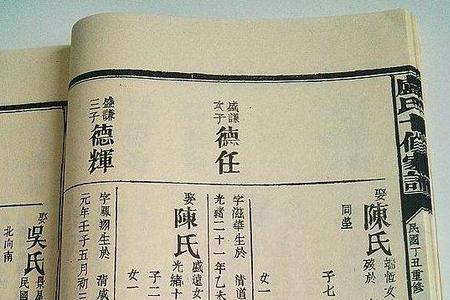 氏
修家譜
民國丁丑重修
盛謙
子
德任
盛謙
三子
德輝
娶陳氏
女
歿於
子七
同塋
女一
字滋華生於 清道
光緒二十一年乙未
娶陳氏
盛遠女
光緒十
子二
女一
字鳳翔生於 清咸
元年壬子五月初三
娶吳氏
民
北向南